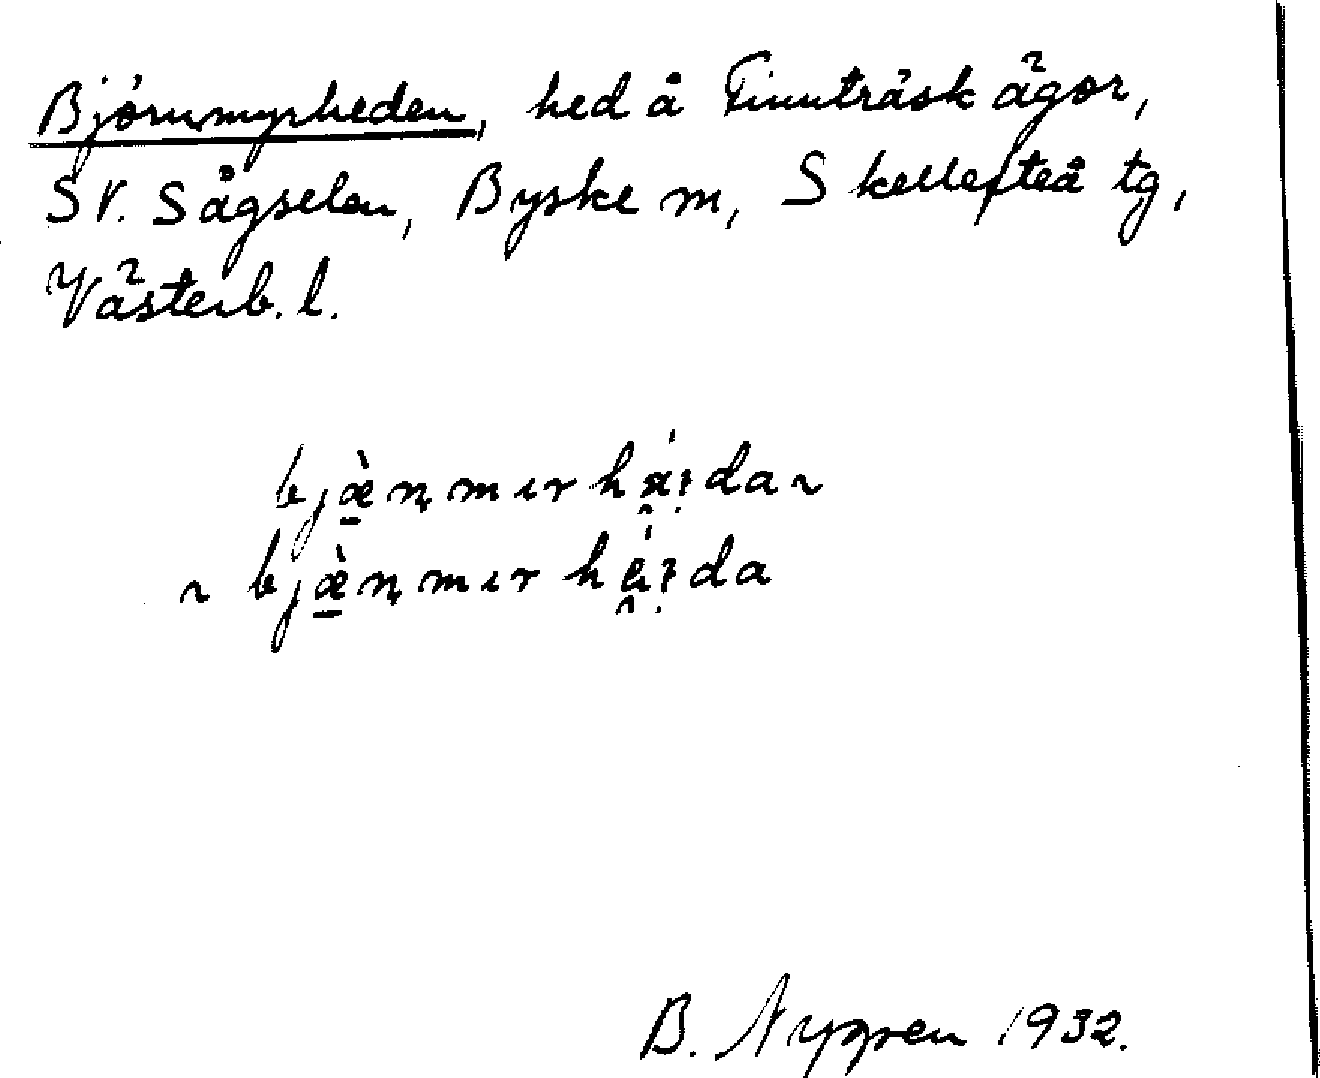 Björnmyrheden, hed å Finnträsk ägor,
SV. Sågselen, Byske sn, Skellefteå tg,
Västerb. l.
bjæ̀ṇmιrhái̯da ~
~ bjæ̀ṇmιrhéi̯da
B. Nygren 1932.